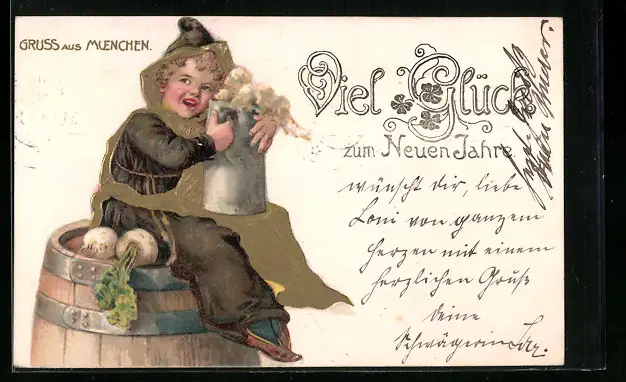 GRUSS AUS MUENCHEN.
Viel Glück
zum Neuen Jahre
wünscht dir, liebe
Loni von ganzem
Herzen mit einem
herzlichen Gruß
deine
Schwägerin